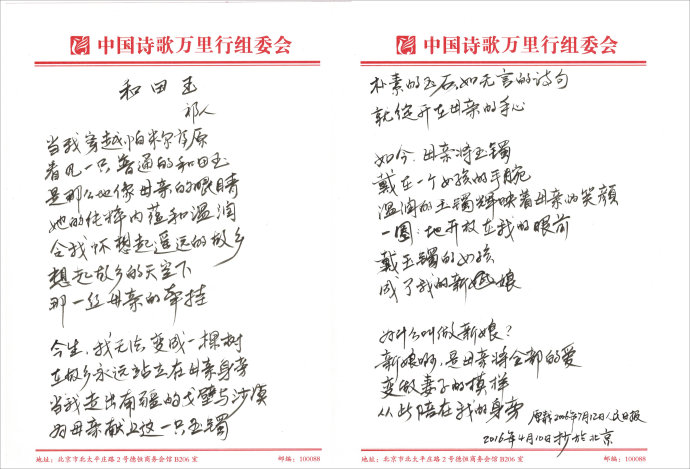 中国诗歌万里行组委会
和田玉
祁人
当我穿越帕米尔高原
看见一只普通的和田玉
是那么地像母亲的眼睛
她的纯粹内蕴和温润
令我怀想起遥远的故乡
想起故乡的天空下
那一丝母亲的牵挂
今生,我无法变成一棵树
在故乡永远站立在母亲身旁
当我走出南疆的戈壁与沙漠
为母亲献上这一只玉镯
地址:北京市北太平庄路2号德恒商务会馆B206室 邮编:100088
中国诗歌万里行组委会
朴素的玉石,如无言的诗句
就绽开在母亲的手心
如今,母亲将玉镯
戴在一个女孩的手腕
温润的玉镯辉映着母亲的笑颜
一圈圈地开放在我的眼前
戴玉镯的女孩
成了我的新娘
为什么叫做新娘?
新娘啊,是母亲将全部的爱
变做妻子的模样
从此陪在我的身旁
原载2006年7月12日人民日报
2016年4月10日抄于北京
地址:北京市北太平庄路2号德恒商务会馆B206室 邮编:100088